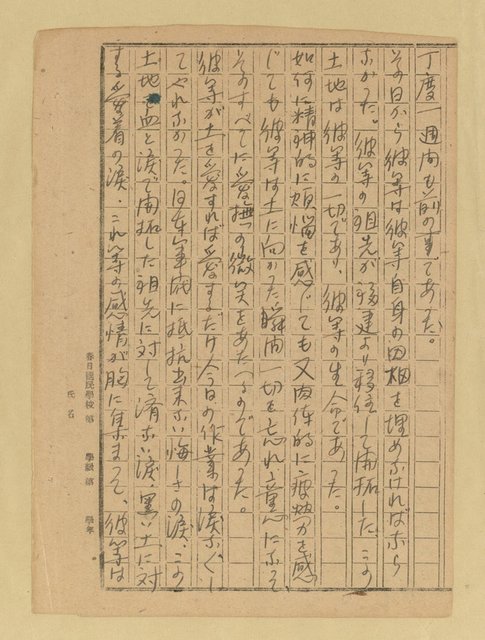 丁度一週間も前の事であった。
その日から彼等は彼等自身の田畑を埋めなければなら
なかった。彼等の祖先が福建より移住して開拓した、この
土地は彼等の一切であり、彼等の生命であった。
如何に精神的に煩悩を感じても又肉体的に疲労を感
じても彼等は土に向かった瞬間一切を忘れ童心になって
そのすべてに愛撫の微笑をあたへるのであった。
彼等が土を愛すれば愛するだけ今日の作業は涙なくし
てやれなかった。日本軍閥に抵抗出来ない悔しさの涙、この
土地を血と涙で開拓した祖先に対して済ない涙、黒い土に対
する愛着の涙、これ等の感情が胸に集まって、彼等は
春日國民學校 第 學級 第 學年
氏名